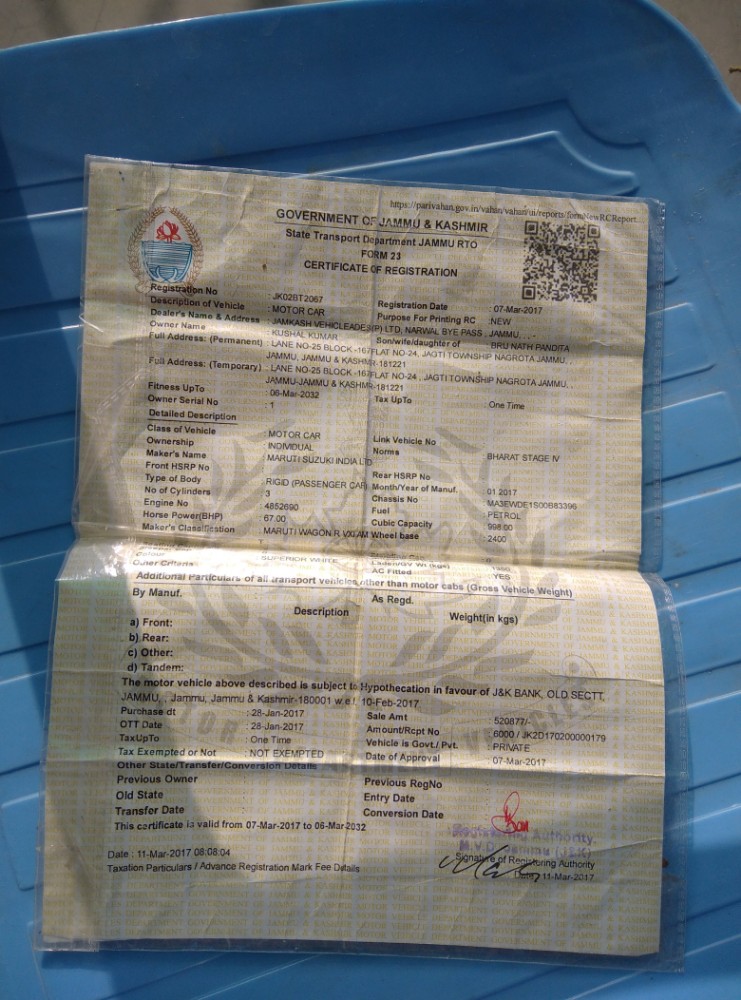 https://parivahan.gov.in/vahan/vahan/ui/reports/formNewRCReport...
GOVERNMENT OF JAMMU & KASHMIR
State Transport Department JAMMU RTO
FORM 23
CERTIFICATE OF REGISTRATION
Registration No : JK02BT2067 Registration Date : 07-Mar-2017
Description of Vehicle : MOTOR CAR Purpose For Printing RC : NEW
Dealer's Name & Address : JAMKASH VEHICLEADES(P) LTD, NARWAL BYE PASS , JAMMU, , , -
Owner Name : KUSHAL KUMAR Son/wife/daughter of BRIJ NATH PANDITA
Full Address: (Permanent) : LANE NO-25 BLOCK -167FLAT NO-24, JAGTI TOWNSHIP NAGROTA JAMMU, ,
JAMMU, JAMMU & KASHMIR-181221
Full Address: (Temporary) : LANE NO-25 BLOCK -167FLAT NO-24 , JAGTI TOWNSHIP NAGROTA JAMMU, ,
JAMMU-JAMMU & KASHMIR-181221
Fitness UpTo : 06-Mar-2032 Tax UpTo : One Time
Owner Serial No : 1
Detailed Description
Class of Vehicle : MOTOR CAR Link Vehicle No
Ownership : INDIVIDUAL Norms : BHARAT STAGE IV
Maker's Name : MARUTI SUZUKI INDIA LTD
Front HSRP No Rear HSRP No
Type of Body : RIGID (PASSENGER CAR) Month/Year of Manuf. : 01 2017
No of Cylinders : 3 Chassis No : MA3EWDE1S00B83396
Engine No : 4852690 Fuel : PETROL
Horse Power(BHP) : 67.00 Cubic Capacity : 998.00
Maker's Classification : MARUTI WAGON R VXI AM Wheel base : 2400
Colour : SUPERIOR WHITE
Other Criteria AC Fitted : YES
Additional Particulars of all transport vehicles other than motor cabs (Gross Vehicle Weight)
By Manuf. As Regd.
Description Weight(in kgs)
a) Front:
b) Rear:
c) Other:
d) Tandem:
The motor vehicle above described is subject to Hypothecation in favour of J&K BANK, OLD SECTT,
JAMMU, , Jammu, Jammu & Kashmir-180001 w.e.f. 10-Feb-2017.
Purchase dt : 28-Jan-2017 Sale Amt : 520877/-
OTT Date : 28-Jan-2017 Amount/Rcpt No : 6000 / JK2D170200000179
TaxUpTo : One Time Vehicle is Govt./ Pvt. : PRIVATE
Tax Exempted or Not : NOT EXEMPTED Date of Approval : 07-Mar-2017
Other State/Transfer/Conversion Details
Previous Owner Previous RegNo
Old State Entry Date
Transfer Date Conversion Date
This certificate is valid from 07-Mar-2017 to 06-Mar-2032
Registering Authority.
M.V.D. Jammu (J&K)
Date : 11-Mar-2017 08:08:04 Signature of Registering Authority
Taxation Particulars / Advance Registration Mark Fee Details Date: 11-Mar-2017